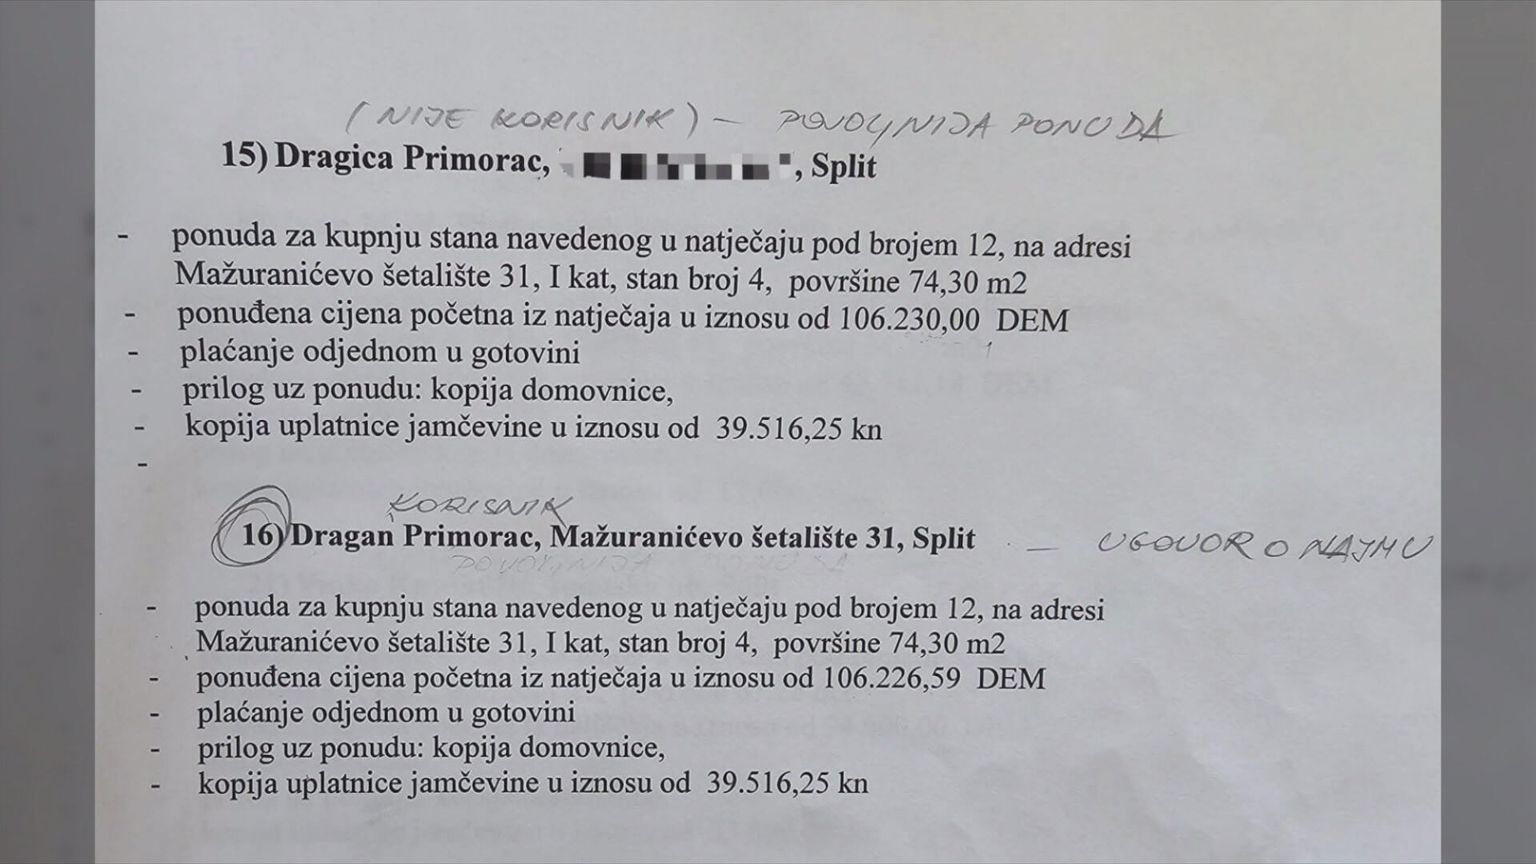 (NIJE KORISNIK) - POVOLJNIJA PONUDA
15) Dragica Primorac, , Split
- ponuda za kupnju stana navedenog u natječaju pod brojem 12, na adresi
Mažuranićevo šetalište 31, I kat, stan broj 4, površine 74,30 m2
- ponuđena cijena početna iz natječaja u iznosu od 106.230,00 DEM
- plaćanje odjednom u gotovini
- prilog uz ponudu: kopija domovnice,
- kopija uplatnice jamčevine u iznosu od 39.516,25 kn
-
KORISNIK
16) Dragan Primorac, Mažuranićevo šetalište 31, Split - UGOVOR O NAJMU
POVOLJNIJA PONUDA
- ponuda za kupnju stana navedenog u natječaju pod brojem 12, na adresi
Mažuranićevo šetalište 31, I kat, stan broj 4, površine 74,30 m2
- ponuđena cijena početna iz natječaja u iznosu od 106.226,59 DEM
- plaćanje odjednom u gotovini
- prilog uz ponudu: kopija domovnice,
- kopija uplatnice jamčevine u iznosu od 39.516,25 kn